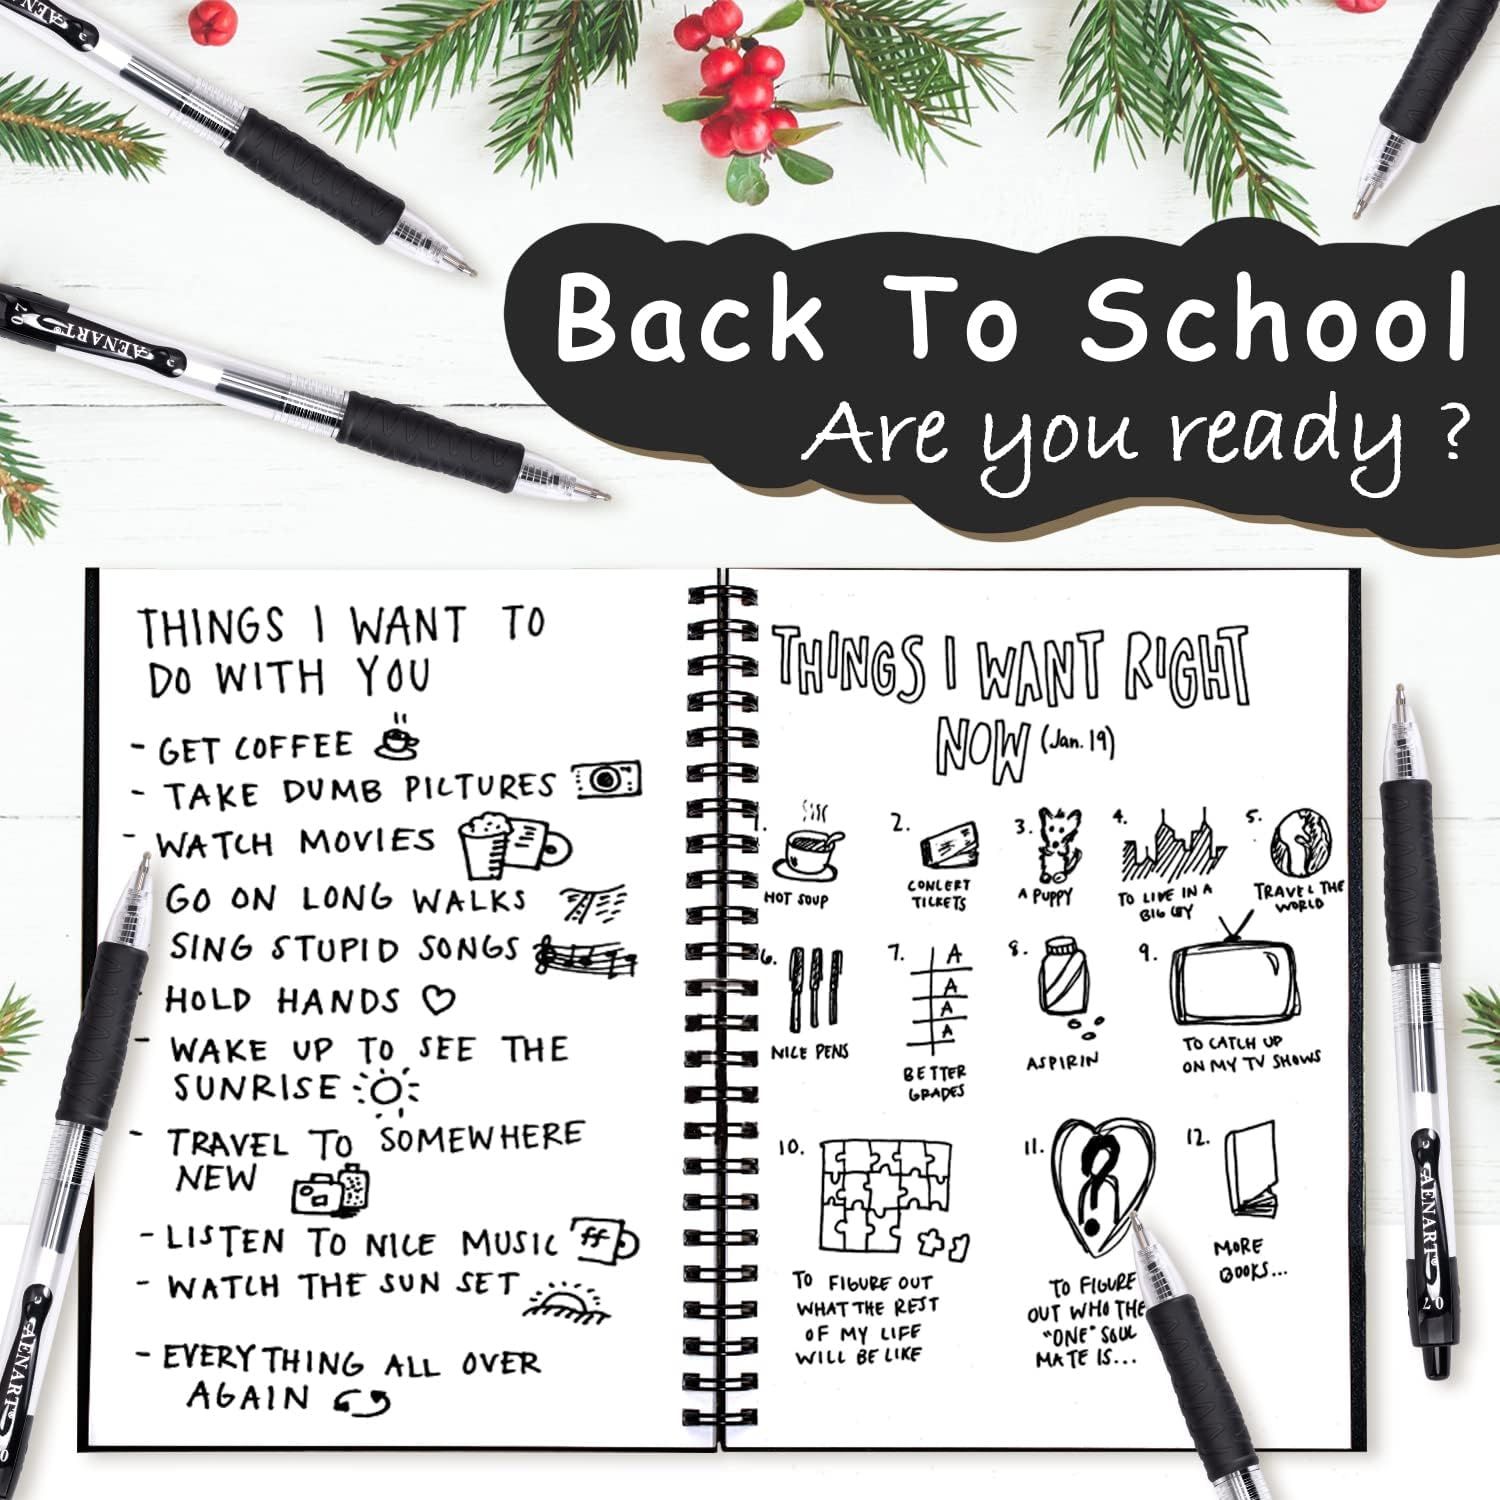 Back To School
Are you ready ?
0.7 AENART®
THINGS I WANT TO
DO WITH YOU
- GET COFFEE
- TAKE DUMB PICTURES
- WATCH MOVIES
GO ON LONG WALKS
SING STUPID SONGS
HOLD HANDS
- WAKE UP TO SEE THE
SUNRISE
- TRAVEL TO SOMEWHERE
NEW
- LISTEN TO NICE MUSIC
ff
- WATCH THE SUN SET
- EVERYTHING ALL OVER
AGAIN
THINGS I WANT RIGHT
NOW (Jan. 19)
1.
HOT SOUP
2.
CONCERT
TICKETS
3.
A PUPPY
4.
TO LIVE IN A
BIG CITY
5.
TRAVEL THE
WORLD
6.
NICE PENS
7.
A
A
A
A
BETTER
GRADES
8.
ASPIRIN
9.
TO CATCH UP
ON MY TV SHOWS
10.
TO FIGURE OUT
WHAT THE REST
OF MY LIFE
WILL BE LIKE
11.
?
TO FIGURE
OUT WHO THE
"ONE" SOUL
MATE IS...
12.
MORE
BOOKS...
AENART® 0.7
AENART®